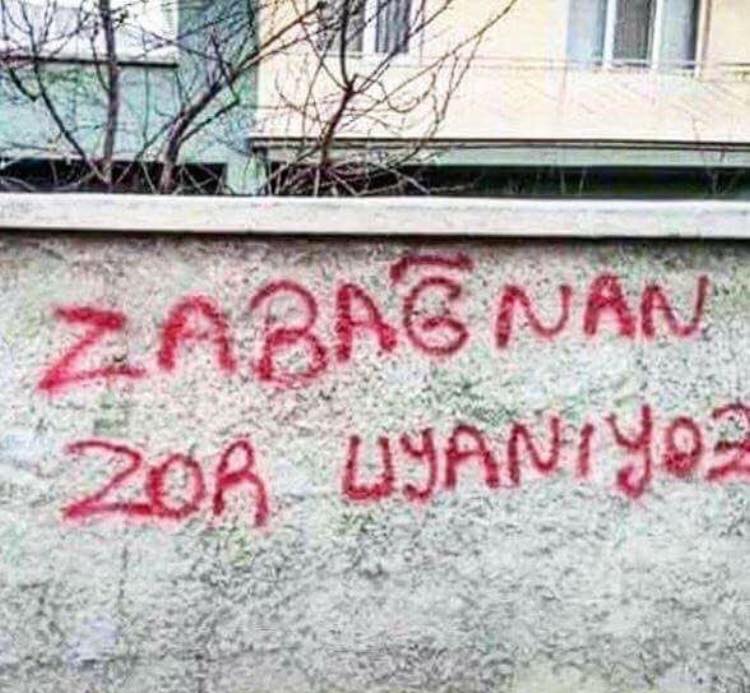 ZABAĞNAN
ZOR UYANIYOZ